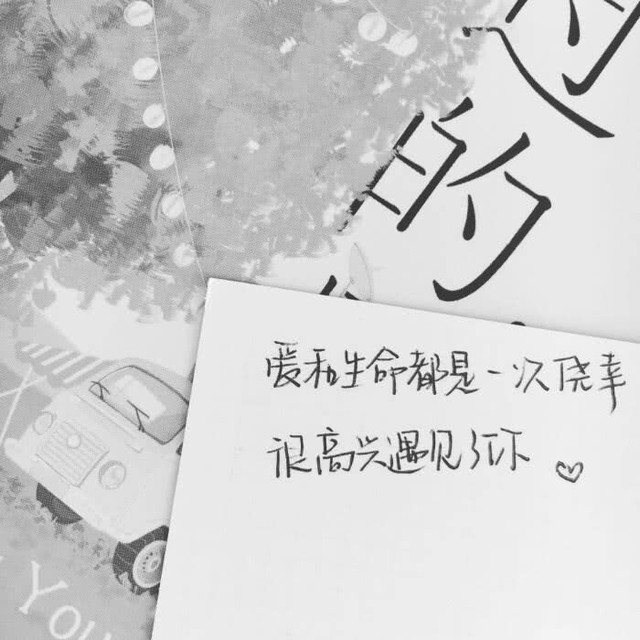 的
爱和生命都是一次侥幸
很高兴遇见了你 ♡
YOU